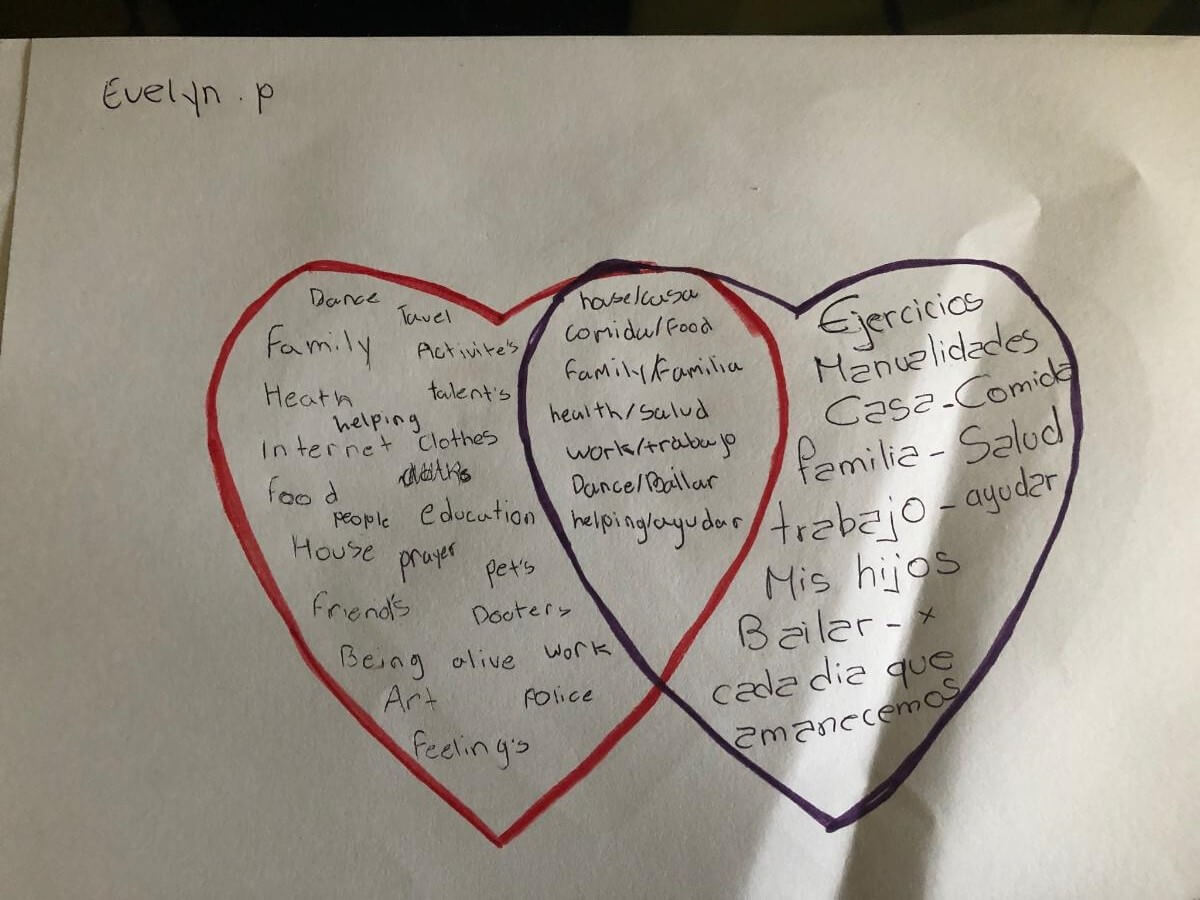 Evelyn . p
Dance
Tavel
Family
Activite's
Heath
talent's
helping
Internet
Clothes
food
people
education
House
prayer
pet's
friend's
Docters
Being alive
work
Art
Police
feeling's
house/casa
comida/food
family/familia
health/salud
work/trabajo
Dance/Bailar
helping/ayudar
Ejercicios
Manualidades
Casa - Comida
familia - Salud
trabajo - ayudar
Mis hijos
Bailar - x
cada dia que
amanecemos